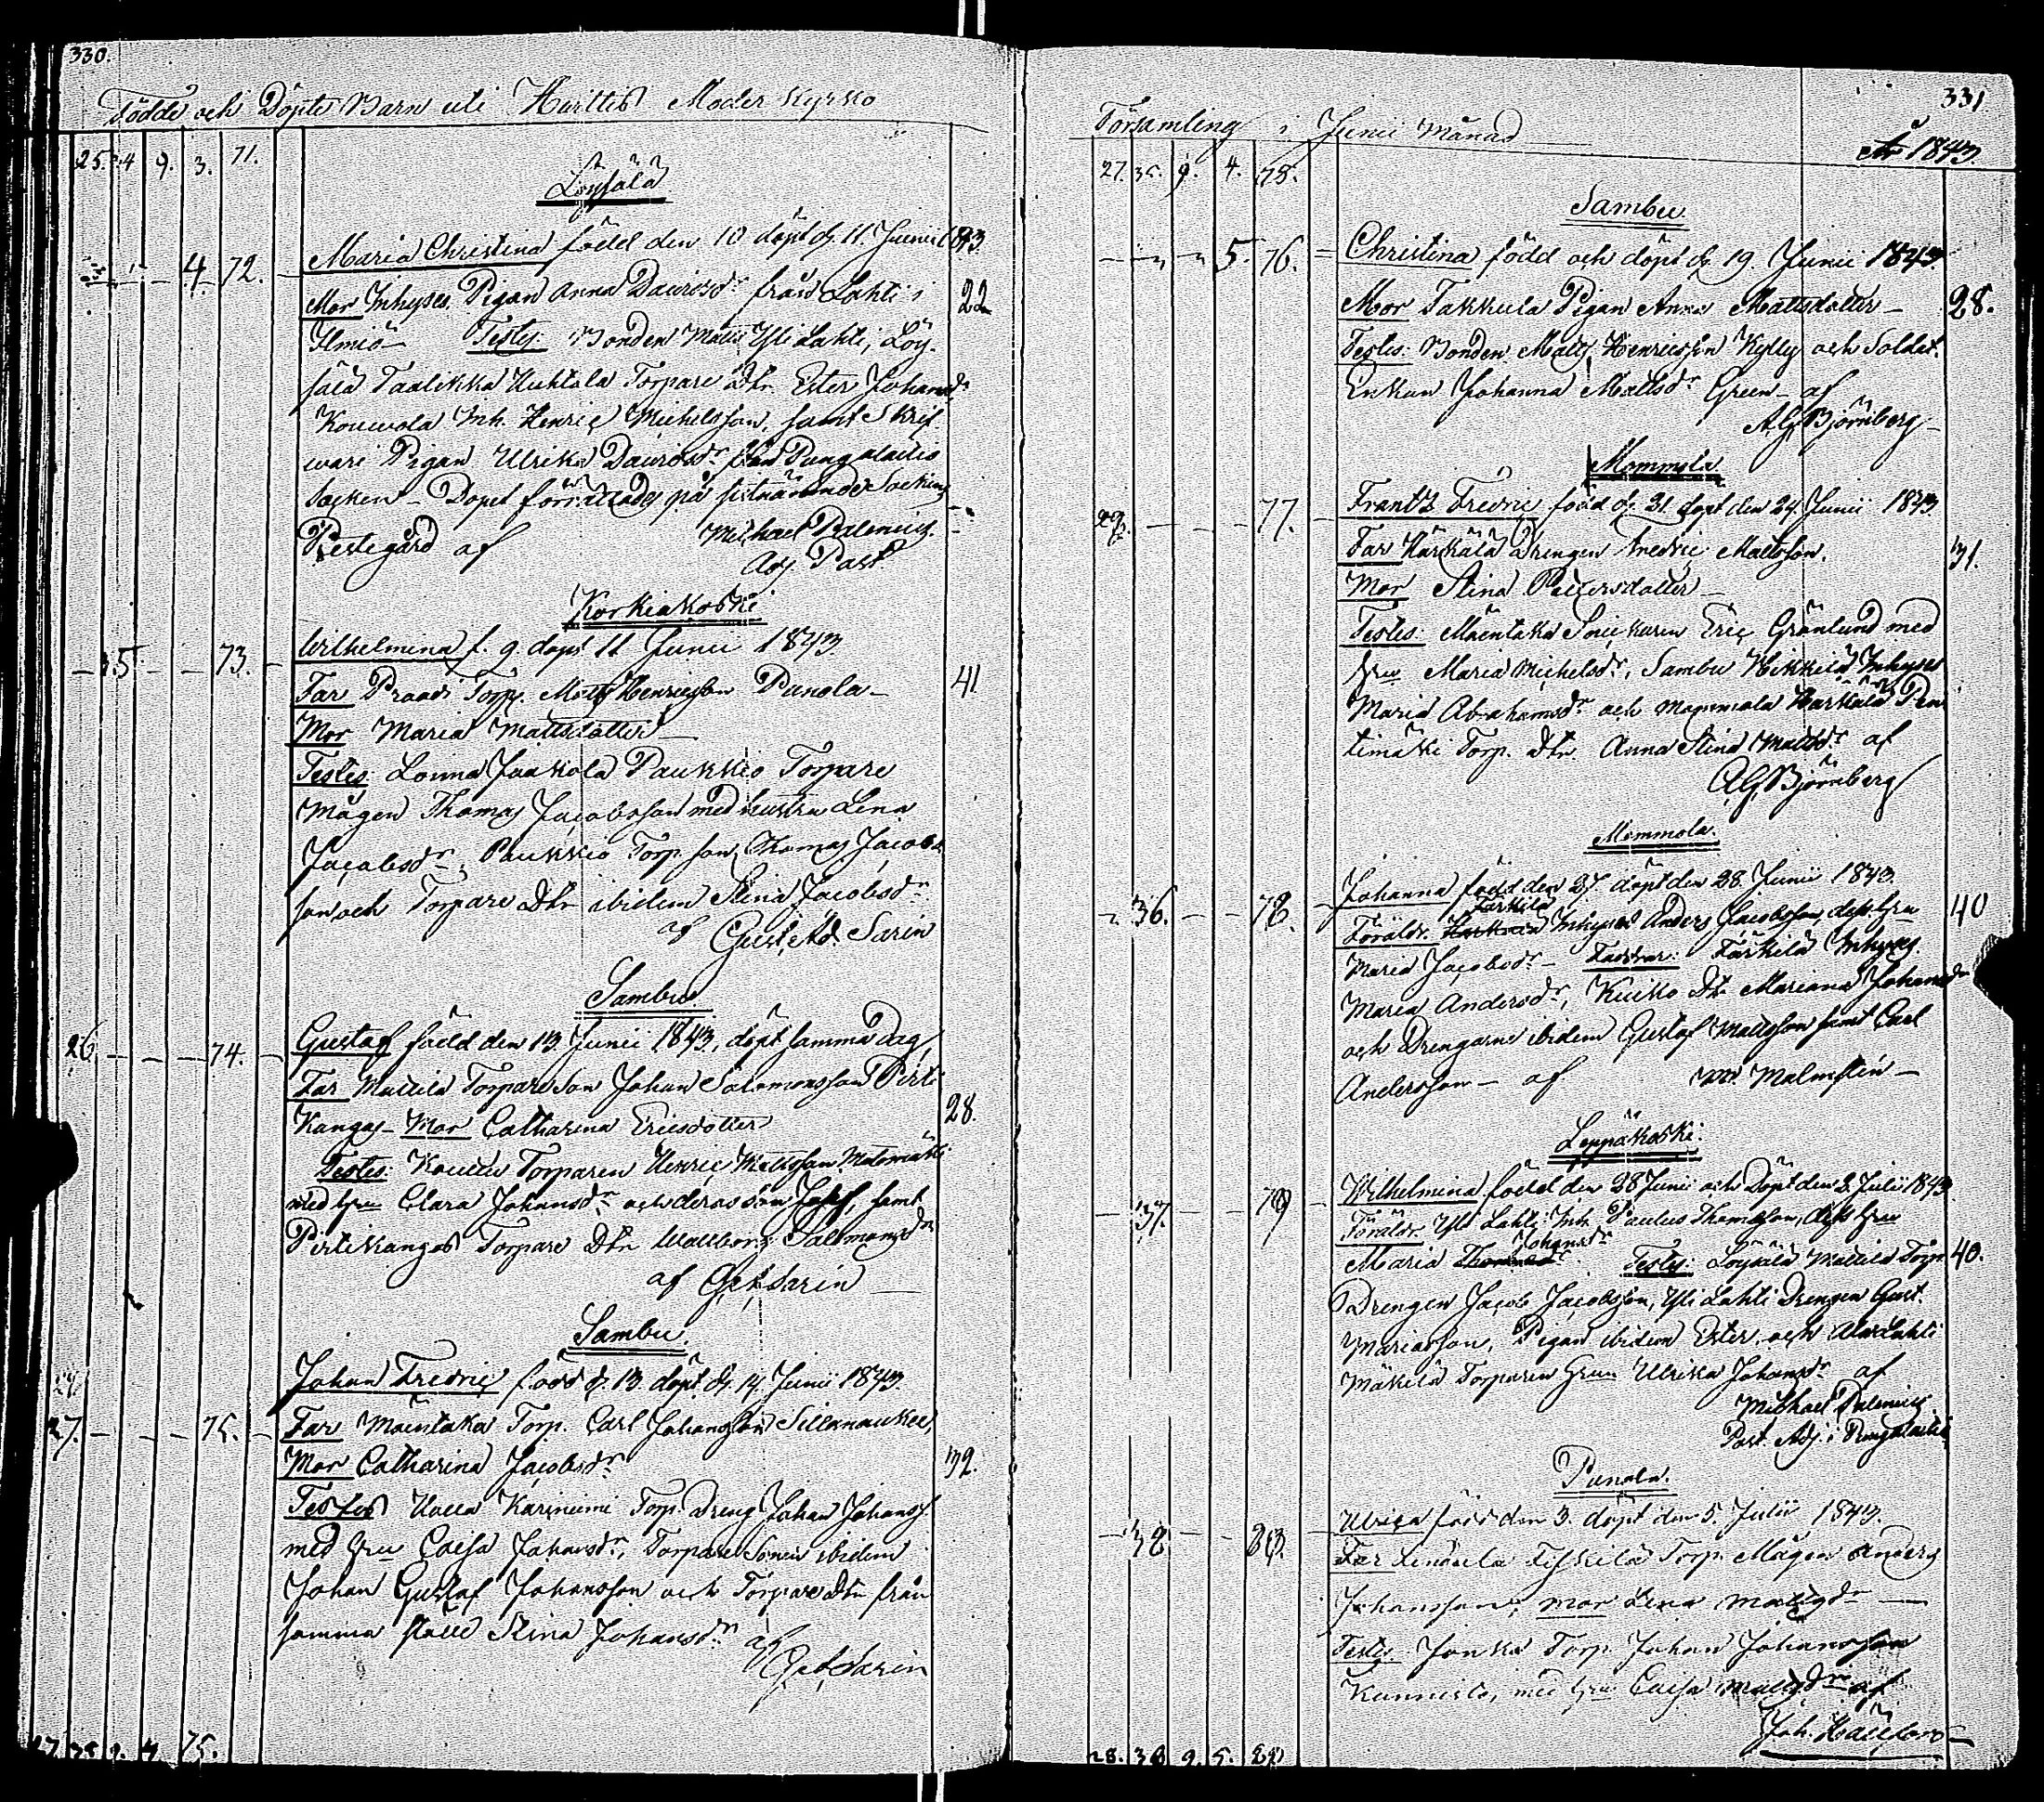 330.
Födde och Döpte Barn uti Huittis Moder Kyrko
25. 34 9. 3. 71.
Löysälä
4. 72. Maria Christina född den 10 döpt d. 11. Junii 1843
Mor Inhyses Pigan Anna Davidsdr från Lahti i 22
Ilmiö Testes: Bonden Matts Yli Lahti, Löy-
sälä Taalikka Huhtala Torpare Dtr Ester Johansdr
Kouwola Inh. Henric Michelsson, samt Skrif
wari Pigan Ulrika Davidsdr från Pungalaitio
Socken - Dopet förrättades på sistnämnde Sockens
Prestegård af Michael Palenius.
Adj. Past.
Korkiakoski
35 73. Wilhelmina f. 9 döpt 11 Junii 1843
Far Torp. Matts Henricsson Punola 41
Mor Maria Mattsdotter
Testes: Jaakola Paukkio Torpare
Mågen Thomas Jacobsson med hustru Lena
Jacobsdr, Paukkio Torp. son Thomas Jacobs
son och Torpare Dtr ibidem Stina Jacobsdr
af Gust. Ad. Sarin
Sambu
26 74. Gustaf född den 13 Junii 1843, döpt samma dag
Far Mattila Torpare Son Johan Salomonsson Pirti
Kangas - Mor Catharina Ericsdotter 28.
Testes: Torparen Henric Mattsson
med hru Clara Johansdr och deras son Josef, samt
Pirtikangas Torpare Dtr Wallborg Salomonsdr
af G. A. Sarin
Sambu
27. 75. Johan Fredric född d. 13. döpt d. 14 Junii 1843.
Far Mäentaka Torp. Carl Johansson Sillanaukee,
Mor Catharina Jacobsdr 32.
Testes Karinumi Torp. Dreng Johan Johanss.
med hru Caisa Johansdr, Torpare Sonen ibidem
Johan Gustaf Johansson och Torpare Dtr från
samma ställe Stina Johansdr af
G. A. Sarin
27 35 9. 4. 75.
331
Församling i Junii Månad År 1843.
27. 35. 9. 4. 75.
Sambu
5. 76. Christina född och döpt d. 19. Junii 1843
Mor Takkula Pigan Anna Mattsdotter 28.
Testes: Bonden Matts Henricsson Kylly och Soldat.
Enkan Johanna Mattsdr Green - af
Alg. Björnberg
Mommola
77. Frantz Fredric född d. 21. döpt den 24 Junii 1843
Far Härkälä Drengen Fredric Mattsson. 31.
Mor Stina Pettersdotter
Testes: Mäentaka Snickaren Eric Grönlund med
hru Maria Michelsdr, Sambu Heikkilä Inhyses
Maria Abrahamsdr och Mommola Härkälä Pen
timäki Torp. Dtr. Anna Stina Mattsdr af
Alg. Björnberg
Mommola.
36. 78. Johanna född den 27. döpt den 28. Junii 1843
Färkilä
Föräldr. Inhyses Anders Jacobsson dess hru 40
Maria Jacobsdr - Faddrar: Färkilä Inhyses
Maria Andersdr, Kuikko Dtr Mariana Johansdr
och Drengarne ibidem Gustaf Mattsson samt Carl
Andersson - af Malmstén
Leppäkoski.
37. 79 Wilhelmina född den 28 Junii och Döpt den 2. Julii 1843
Föräldr. Yli Lahti Inh. Paulus Thomasson, dess hru
Johansdr
Maria Testes: Löysälä Mattila Torp. 40.
Drengen Jacob Jacobsson, Yli Lahti Drengen Gust.
Mariasson, Pigan ibidem Ester, och Alas Lahti
Mäkilä Torparen hru Ulrika Johansdr af
Michael Palenius.
Past. Adj. i Pungalaitio
Punola.
38 80. Ulrica född den 3. döpt den 5. Julii 1843.
Far Torp. Mågen Anders
Johansson, mor Lena Mattsdr
Testes: Torp. Johan Johansson
Kannisto, med hru Caisa Mattsdr af
Joh. Hallbro
28. 38 9. 5. 80